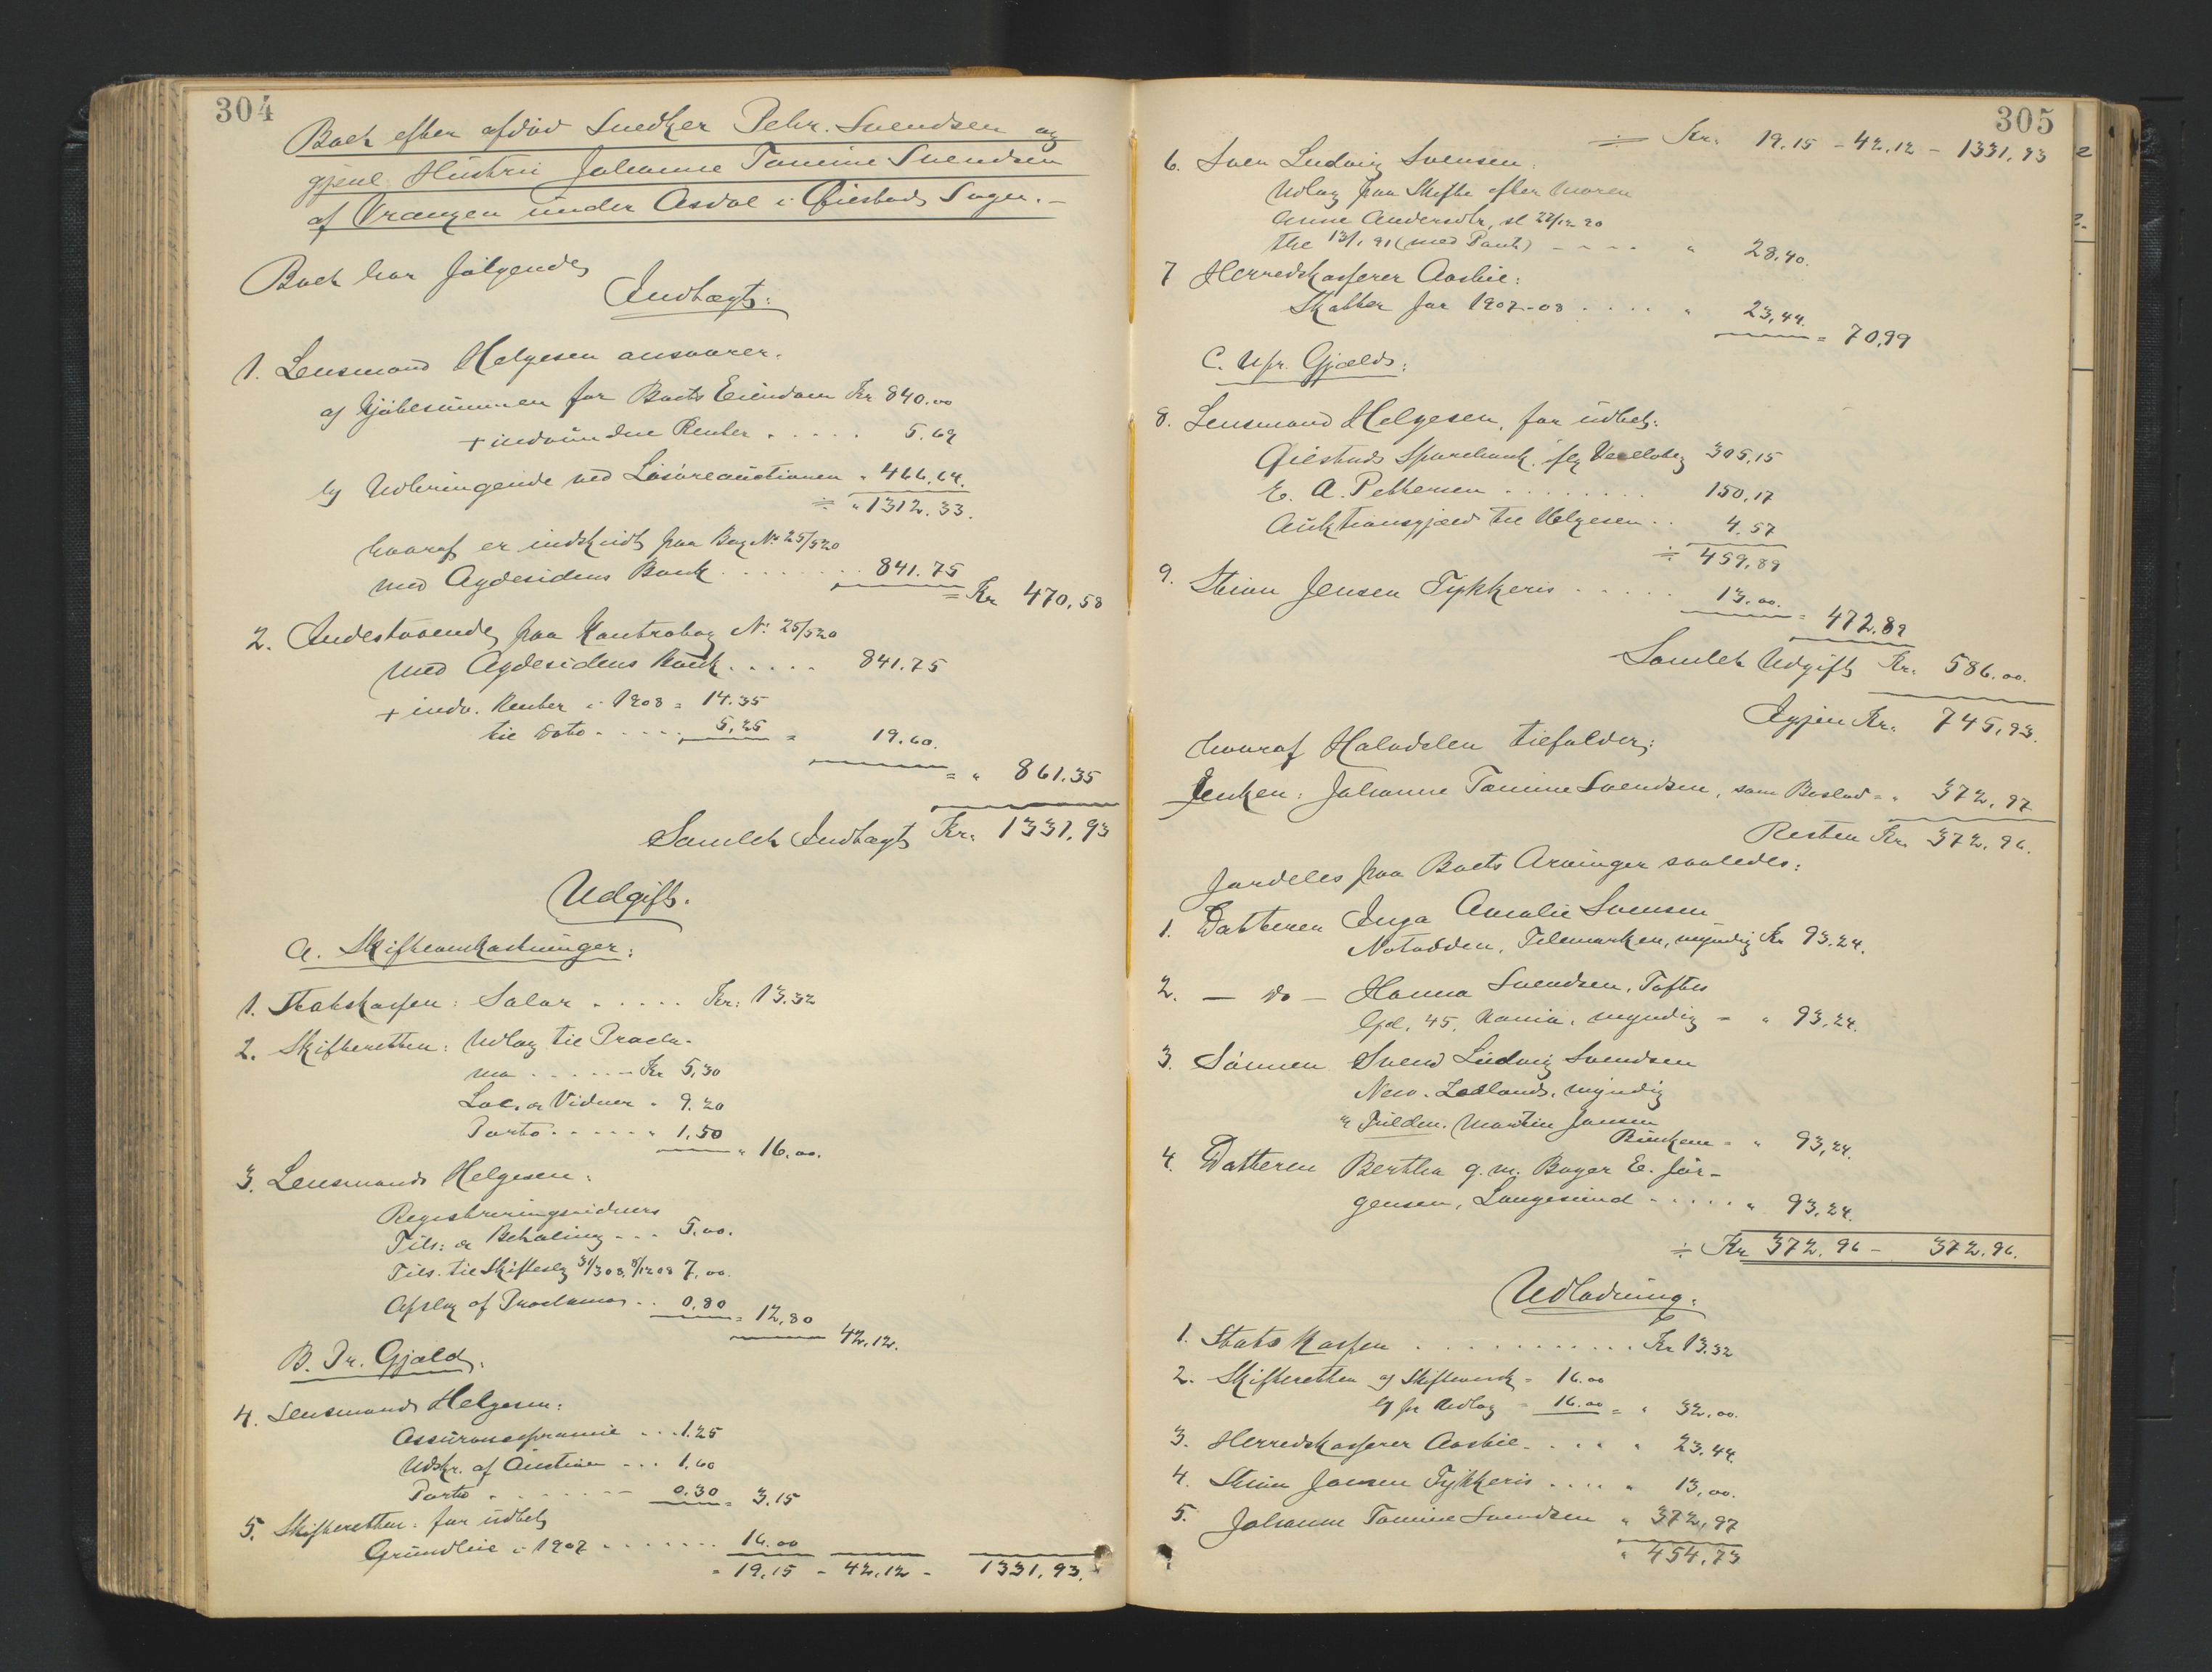 304
Boet efter afdöd Snedker Pehr. Svendsen og
gjenl. Hustru Johanne Tomine Svendsen
af Vrangen under Asdal i Øiestads Sogn. -
Boet har følgende
Indtægt:
1. Lensmand Helgesen ansvarer.
a) Kjöbesummen for Boets Eiendom Kr 840.00
+ indvundne Renter . . . . . 5.69
b) Udbringende ved Lösöreauctionen " 466.64.
÷ " 1312.33.
hvoraf er indskudt paa Bog No 25/520
med Agdesidens Bank . . . . . . . 841.75
= Kr 470,58
2. Indestaaende paa Kontrabog No 25/520
med Agdesidens Bank . . . . . 841.75
+ indv. Renter i 1908 = 14.35
til Dato . . . . . 5,25 = 19.60.
= " 861.35
Samlet Indtægt Kr. 1331,93
Udgift.
A. Skifteomkostninger:
1. Statskassen: Salær . . . . . Kr: 13.32
2. Skifteretten: Udlæg til Procla-
ma . . . . . - Kr 5,30
Loc. og Vidner " 9.20
Porto . . . . . " 1.50
" 16.00.
3. Lensmand Helgesen:
Registreringsvidners
Tils: og Betaling - - - 5.00.
Tils. til Skifteslg 31/3 08, 8/12 08 7,00.
Opslag af Proclamas . . 0.80
= 12,80
42.12.
B. Pr. Gjæld.
4. Lensmand Helgesen:
Assurancepræmie . . . 1.25
Udskr. af Auction . . . 1,60
Porto . . . . . . - - 0.30 = 3.15
5. Skifteretten: for udbet
Grundleie i 1907 . . . . . . . 16.00
= 19,15 - 42,12 - 1331.93.
305
÷ Kr. 19.15 - 42,12 - 1331,93
6. Sven Ludvig Svensen:
Udlæg paa Skifte efter Moren
Anne Andersdtr, sl 22/12 90
thl 13/1 91 (med Pant) - - - - " 28,40.
7 Herredskasserer Aasbie:
Skatter for 1907-08 . . . . " 23,44.
= 70,99
C. Upr. Gjæld:
8. Lensmand Helgesen, for udbet:
Øiestads Sparebank iflg Vexeloblg 305,15
E. A. Pettersen . . . . . . . . 150,17
Auktionsgjæld til Helgesen . . 4,57
÷ 459,89
9. Stian Jensen Tykkeris . . . . . 13.00.
= 472.89
Samlet Udgift Kr. 586.00.
Igjen Kr. 745,93.
hvoraf Halvdelen tilfalder:
Enken: Johanne Tomine Svendsen, som Boslod = " 372,97
Resten Kr. 372.96.
fordeles paa Boets Arvinger saaledes:
1. Datteren Inga Amalie Svensen
Notodden, Telemarken, myndig Kr 93.24.
2. - Do - Hanna Svendsen, Toftes
Gd. 45, Kania, myndig - " 93,24.
3. Sönnen Svend Ludvig Svendsen
New. Zealand, myndig
" Fuldm. Martin Jensen
Binkene - " 93,24.
4. Datteren Bertha g. m. Bager E. Jör-
gensen, Langesund . . . . . " 93,24.
÷ Kr 372.96 - 372.96.
Udlodning:
1. Stats Kassen . . . . . . . . . . . . Kr 13.32
2. Skifteretten a) Skifteomk = 16.00
b) pr Udlæg = 16.00 = " 32.00.
3. Herredskasserer Aasbie . . . . " 23.44
4. Stian Jensen Tykkeris . . . . " 13,00.
5. Johanne Tomine Svendsen " 372,97
" 454,73
2
2.